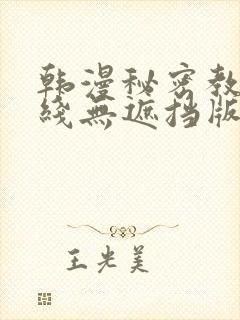 韩漫秘密教
线無遮挡版
王光美